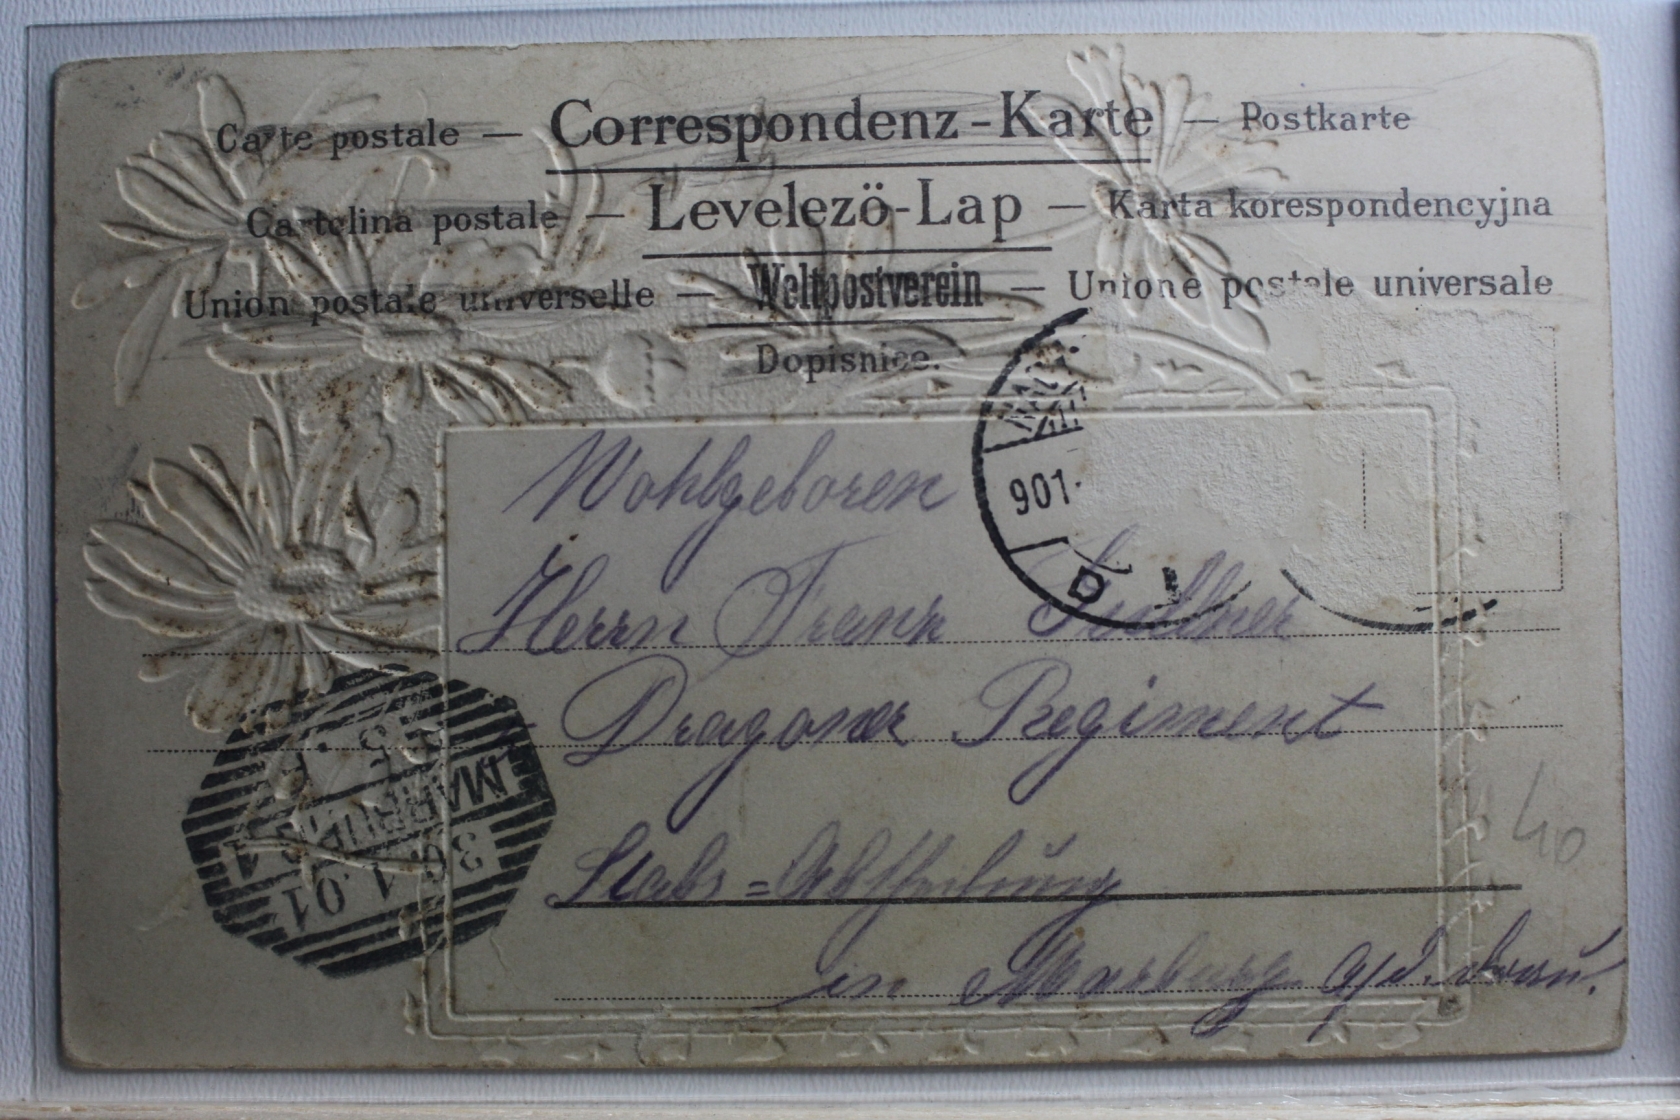 Carte postale — Correspondenz-Karte — Postkarte
Cartolina postale — Levelezö-Lap — Karta korespondencyjna
Union postale universelle — Weltpostverein — Unione postale universale
Dopisnice.
901.
Wohlgeboren
Herrn Frank
Dragoner Regiment
Stabs =
in Marburg a/d. Drau.
MARBURG 1
30.1.01
40